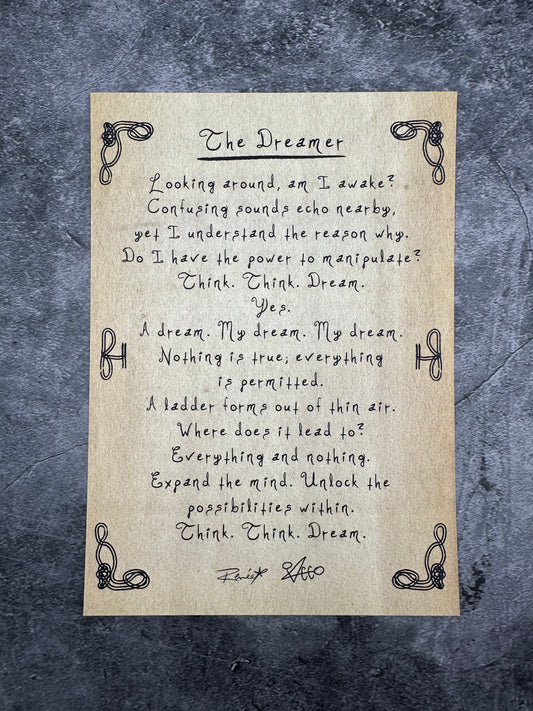 The Dreamer
Looking around, am I awake?
Confusing sounds echo nearby,
yet I understand the reason why.
Do I have the power to manipulate?
Think. Think. Dream.
Yes.
A dream. My dream. My dream.
Nothing is true; everything
is permitted.
A ladder forms out of thin air.
Where does it lead to?
Everything and nothing.
Expand the mind. Unlock the
possibilities within.
Think. Think. Dream.
Renée